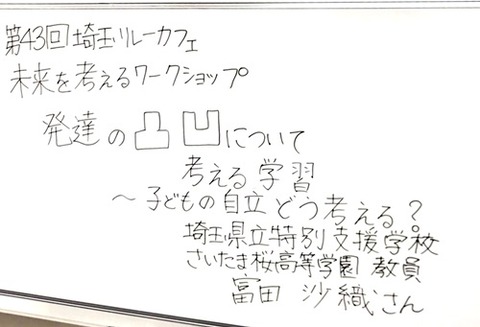 第43回埼玉リレーカフェ
未来を考えるワークショップ
発達の凸凹について
考える学習
～子どもの自立どう考える？
埼玉県立特別支援学校
さいたま桜高等学園 教員
富田 沙織さん